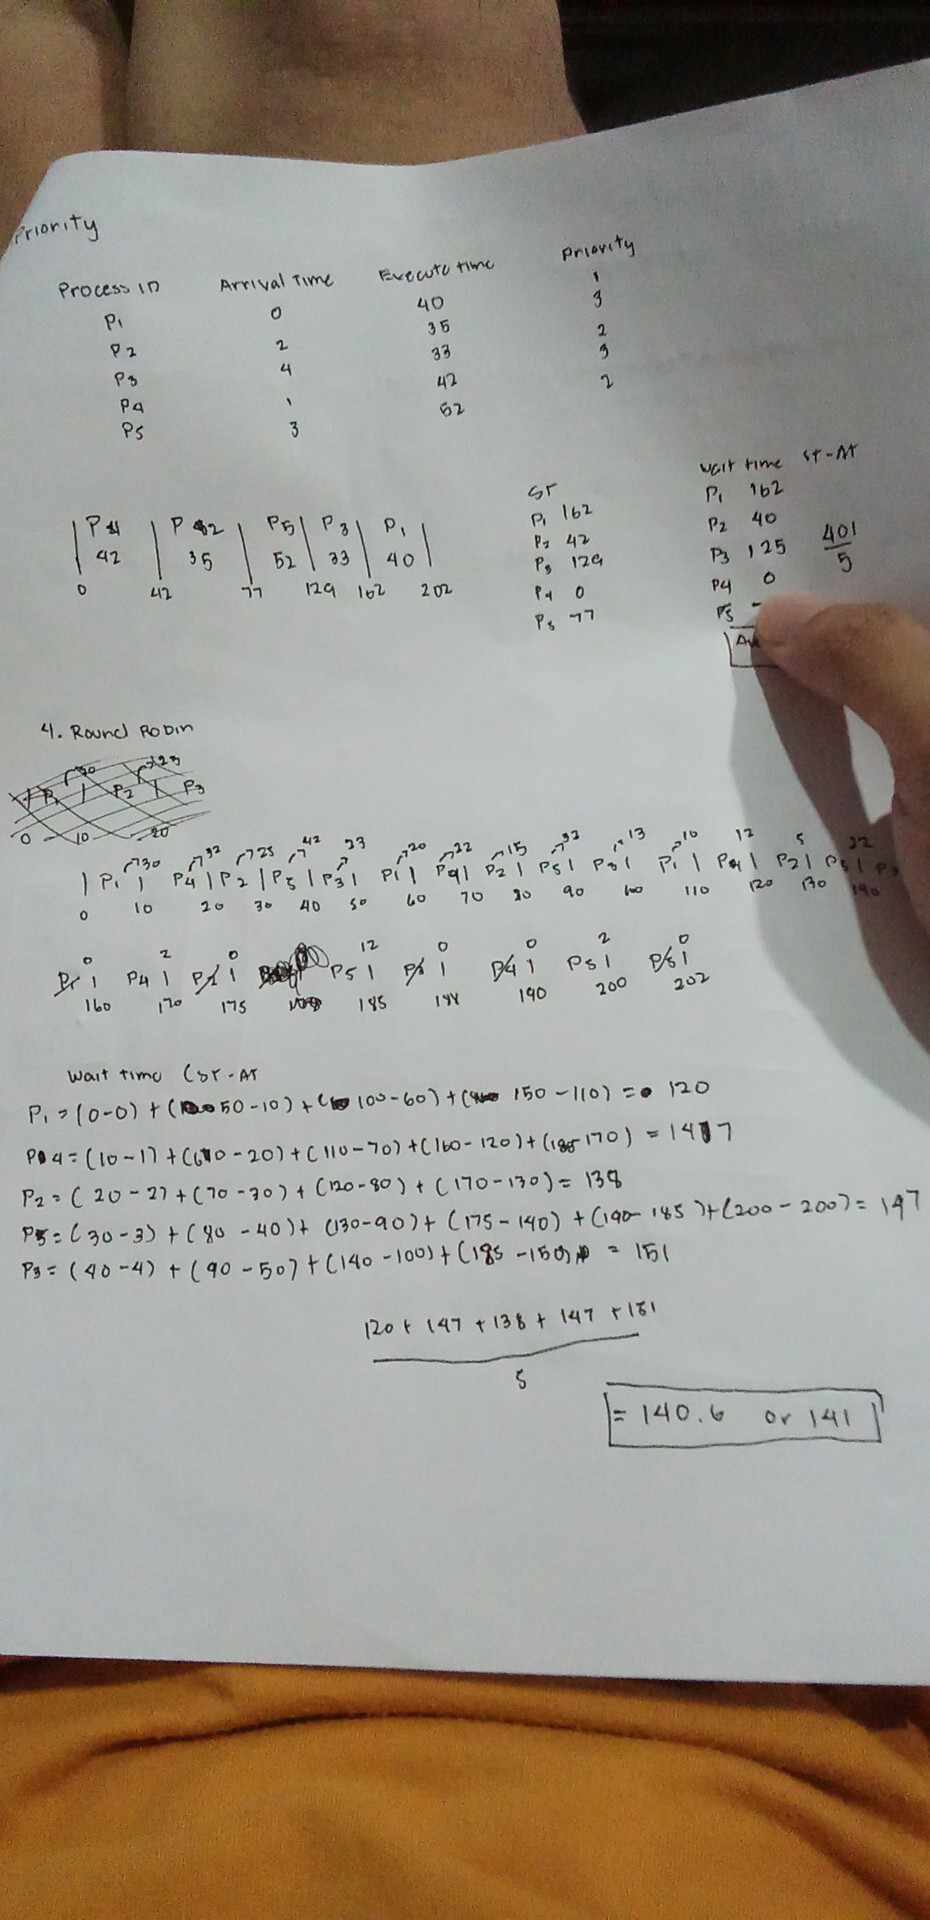 Priority
Process ID Arrival Time Execute time Priority
P1 0 40 1
P2 2 35 3
P3 4 33 2
P4 1 42 3
P5 3 52 2
P4 P2 P5 P3 P1
42 35 52 33 40
0 42 77 129 162 202
ST
P1 162
P2 42
P3 129
P4 0
P5 77
Wait time ST-AT
P1 162
P2 40
P3 125
P4 0
P5
401
5
4. Round Robin
30 23
P1 P2 P3
0 10 20
30 32 25 42 23 20 22 15 32 13 10 12 5 22
P1 P4 P2 P5 P3 P1 P4 P2 P5 P3 P1 P4 P2 P5 P3
0 10 20 30 40 50 60 70 80 90 100 110 120 130 140
0 2 0 12 0 0 2 0
P1 P4 P2 P5 P3 P4 P5 P5
160 170 175 185 188 190 200 202
Wait time (ST-AT
P1 = (0-0) + (50-10) + (100-60) + (150-110) = 120
P4 = (10-1) + (60-20) + (110-70) + (160-120) + (188-170) = 147
P2 = (20-2) + (70-30) + (120-80) + (170-130) = 138
P5 = (30-3) + (80-40) + (130-90) + (175-140) + (190-185) + (200-200) = 147
P3 = (40-4) + (90-50) + (140-100) + (185-150) = 151
120 + 147 + 138 + 147 + 151
5
= 140.6 or 141